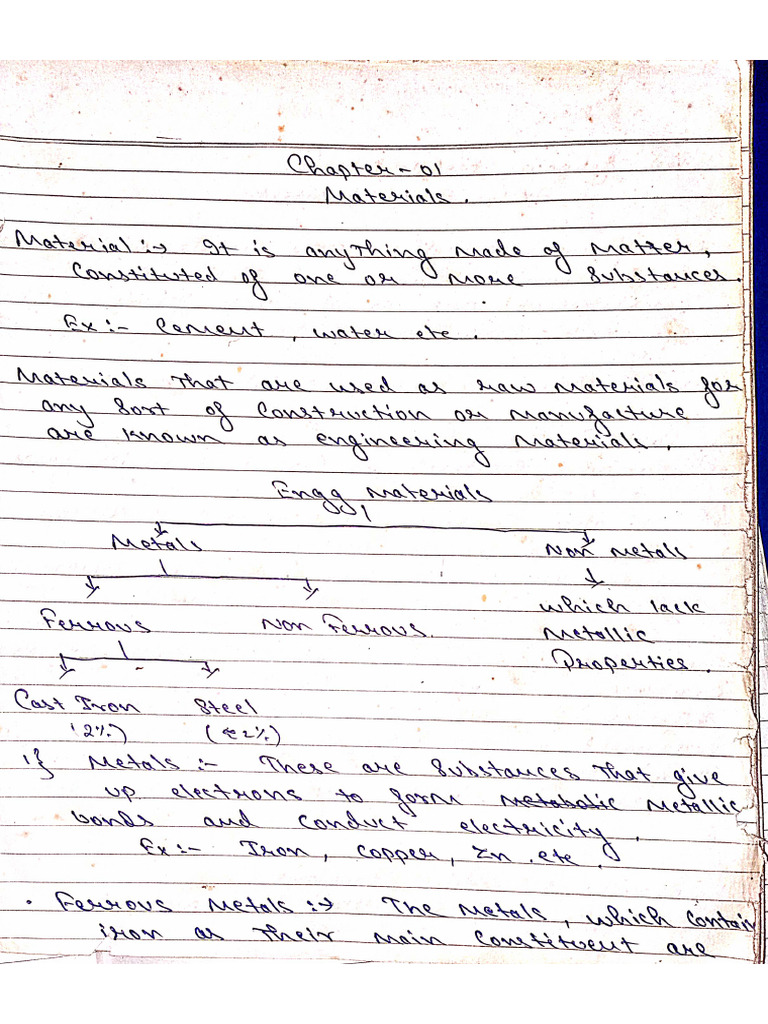 Chapter-01
Materials.
Material :→ It is anything made of matter,
Constituted of one or more substances.
Ex :- Cement, water etc.
Materials that are used as raw materials for
any sort of construction or manufacture
are known as engineering materials.
Engg Materials
Metals Non metals
Ferrous Non Ferrous. which lack
Metallic
Properties.
Cast Iron Steel
2%) 2%)
1} Metals :- These are substances that give
up electrons to form metabolic metallic
bonds and conduct electricity.
Ex :- Iron, copper, Zn etc.
• Ferrous Metals :→ The metals, which contain
iron as their main constituent are